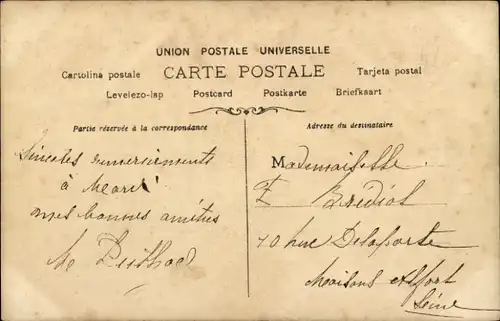 UNION POSTALE UNIVERSELLE
Cartolina postale CARTE POSTALE Tarjeta postal
Levelezo-lap Postcard Postkarte Briefkaart
Partie réservée à la correspondance
Sincères remerciements
à
mes bonnes amitiés
Adresse du destinataire
Mademoiselle
E Brédiot
10 rue Delaporte
Maisons Alfort
Seine